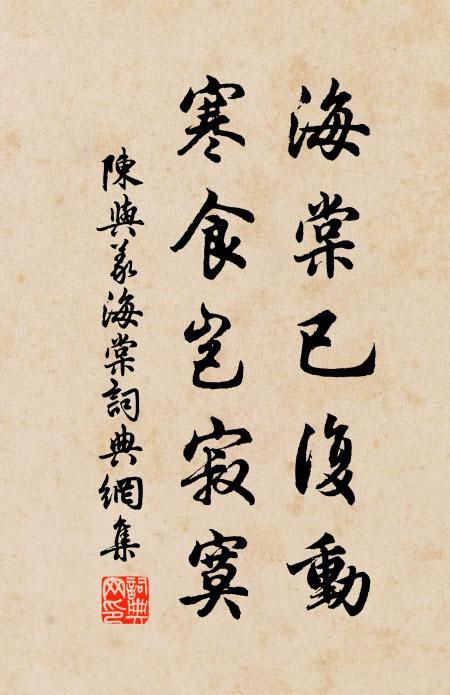 海棠已復動
寒食豈寂寞
陳與義海棠詞典網集
詞典網印